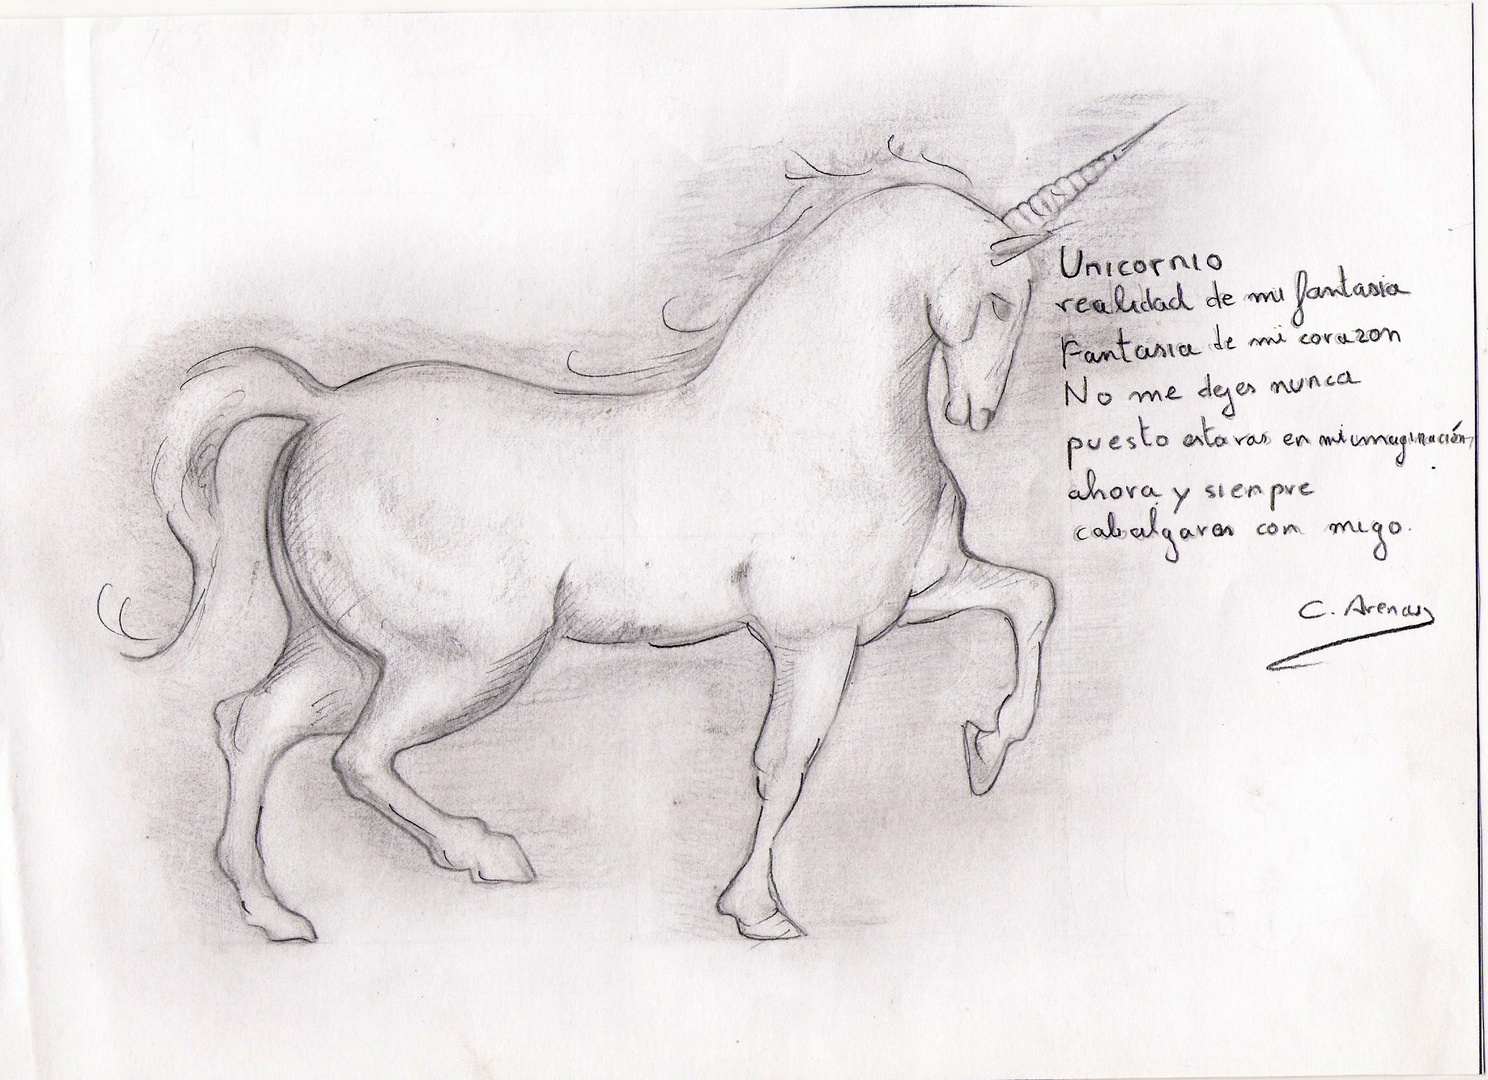 Unicornio
realidad de mi fantasia
Fantasia de mi corazon
No me dejes nunca
puesto estaras en mi imaginación,
ahora y sienpre
cabalgaras con migo.
C. Arenas